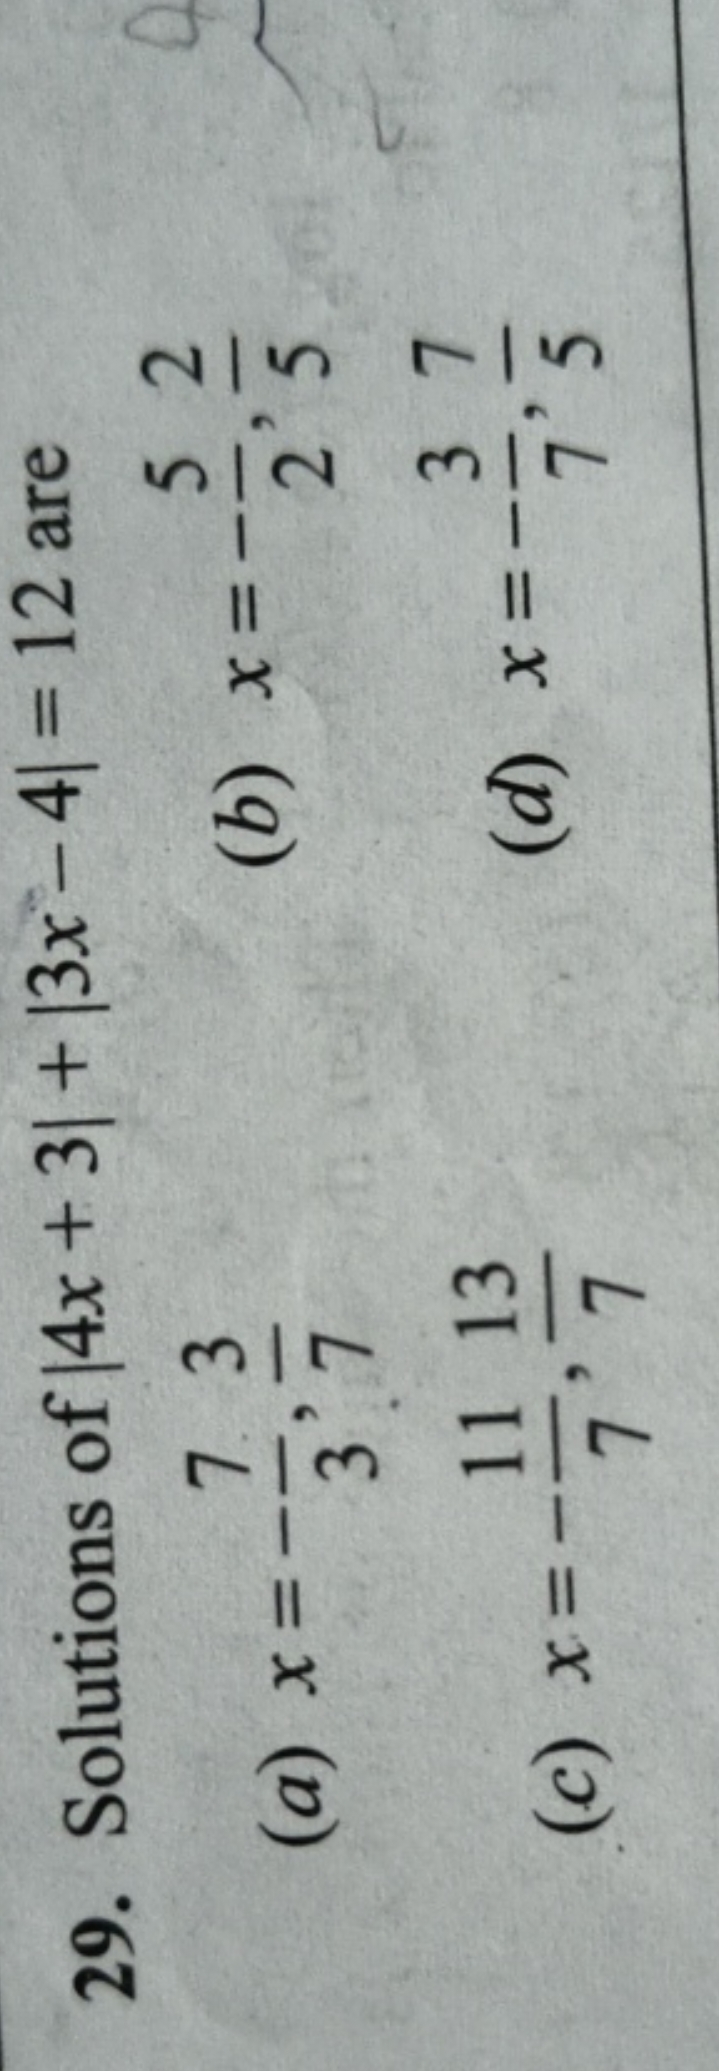 29. Solutions of |4x + 3| + |3x – 4| = 12 are
(a) x = –7/3, 3/7 (b) x = –5/2, 2/5
(c) x = –11/7, 13/7 (d) x = –3/7, 7/5